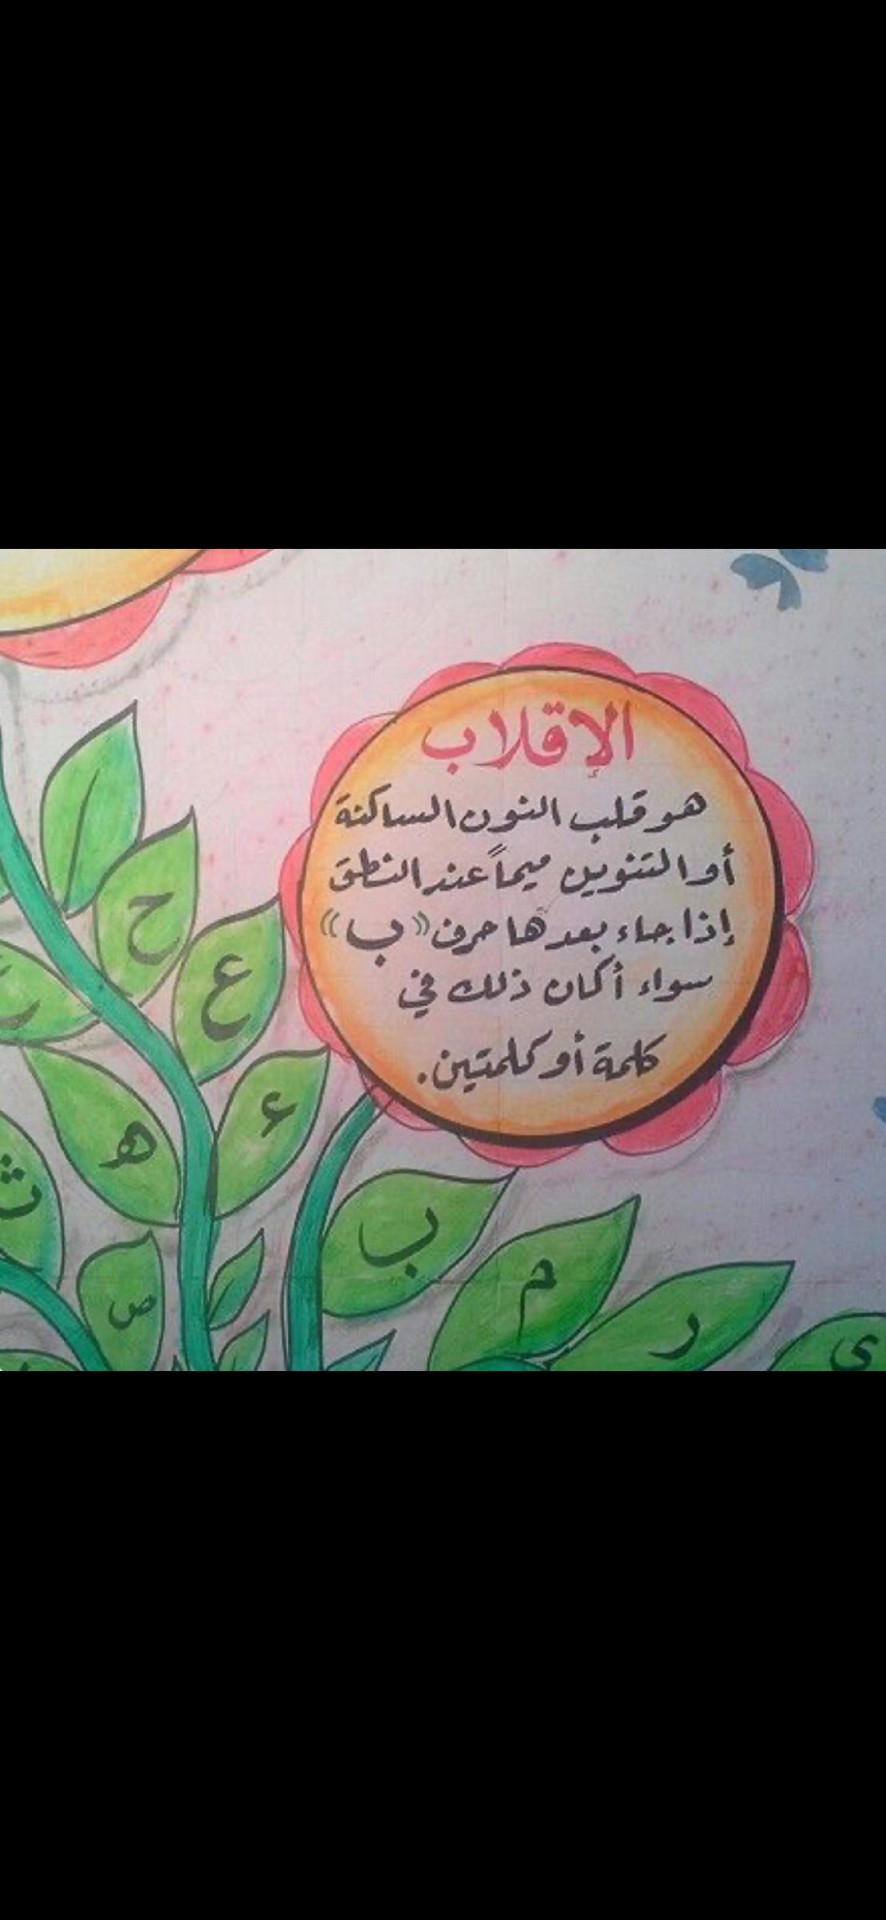 الإقلاب
هو قلب النون الساكنة
أو التنوين ميماً عند النطق
إذا جاء بعدها حرف ((ب))
سواء أكان ذلك في
كلمة أو كلمتين.
ح
ع
ء
ه
ث
ص
ب
م
ر
ى